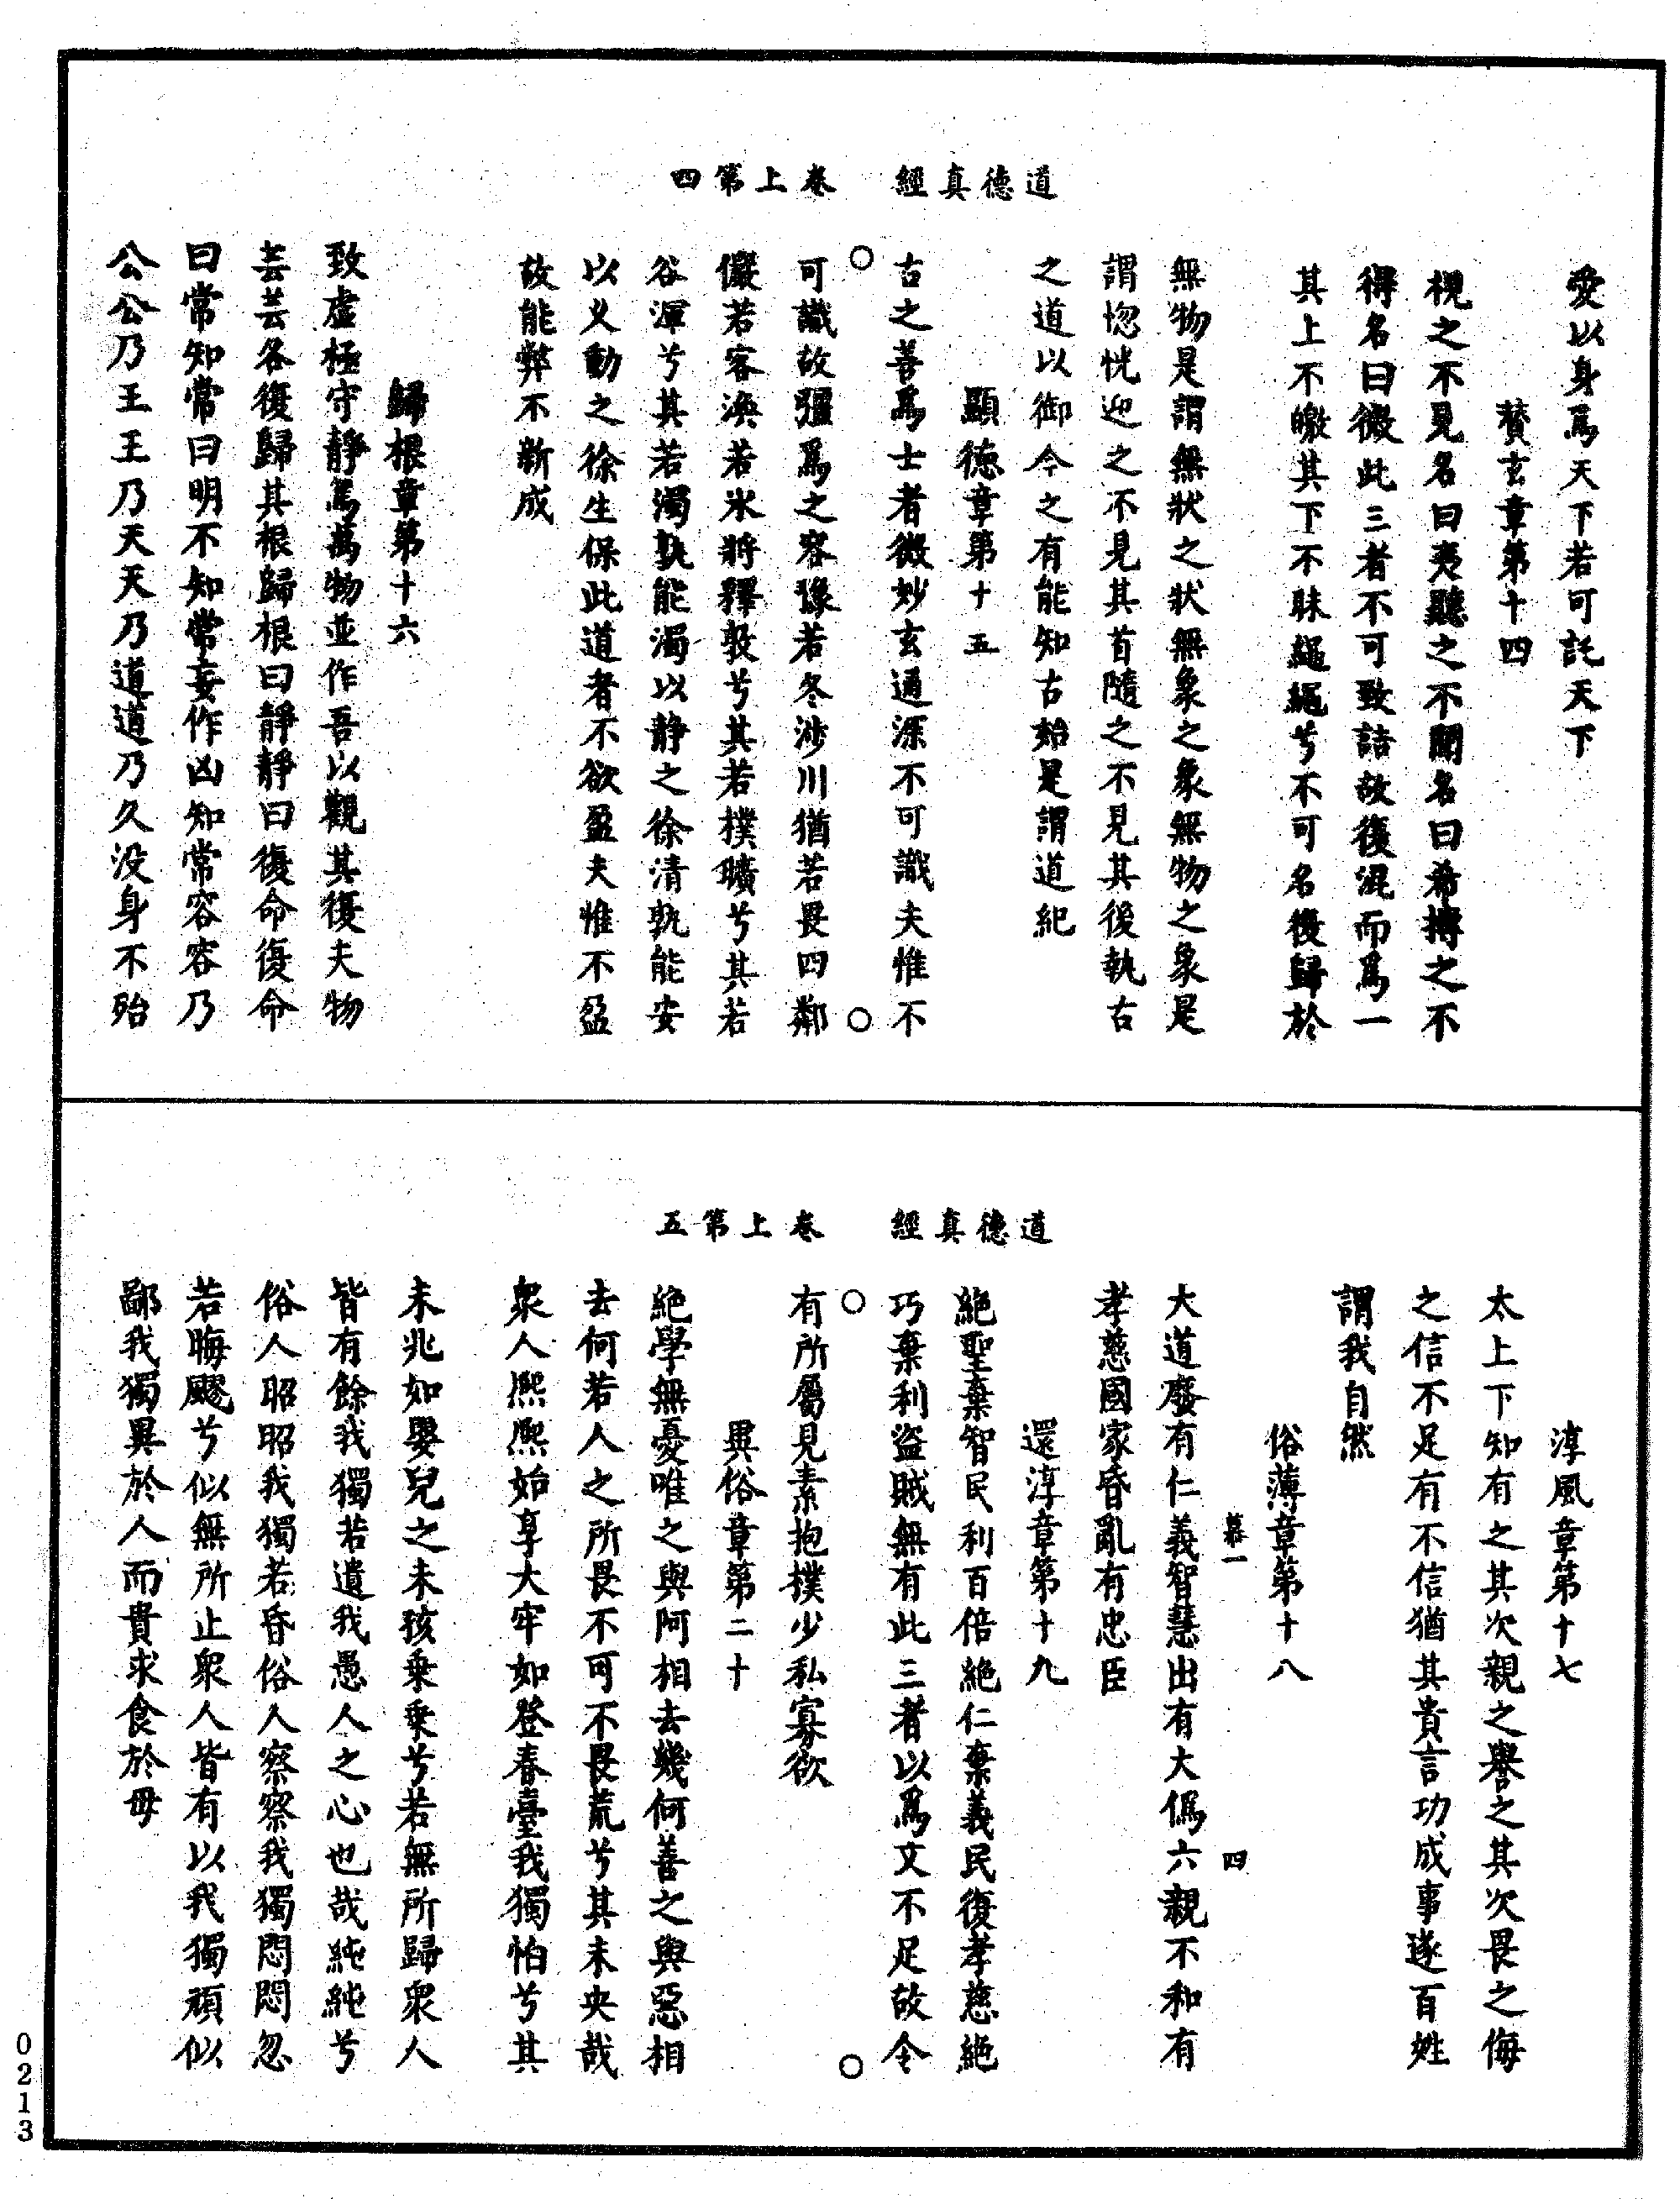 道德真經　卷上第四
愛以身爲天下若可託天下
賛玄章第十四
視之不見名曰夷聽之不聞名曰希搏之不
得名曰微此三者不可致詰故復混而爲一
其上不皦其下不昧繩繩兮不可名復歸於
無物是謂無狀之狀無象之象無物之象是
謂惚恍迎之不見其首隨之不見其後執古
之道以御今之有能知古始是謂道紀
顯德章第十五
古之善爲士者微妙玄通深不可識夫惟不
可識故彊爲之容豫若冬涉川猶若畏四鄰
儼若客渙若氷將釋敦兮其若樸曠兮其若
谷渾兮其若濁孰能濁以静之徐清孰能安
以乂動之徐生保此道者不欲盈夫惟不盈
故能弊不新成
歸根章第十六
致虛極守靜篤萬物並作吾以觀其復夫物
芸芸各復歸其根歸根曰靜靜曰復命復命
曰常知常曰明不知常妄作凶知常容容乃
公公乃王王乃天天乃道道乃久没身不殆
道德真經　卷上第五
淳風章第十七
太上下知有之其次親之譽之其次畏之侮
之信不足有不信猶其貴言功成事遂百姓
謂我自然
俗薄章第十八
慕一　四
大道廢有仁義智慧出有大僞六親不和有
孝慈國家昏亂有忠臣
還淳章第十九
絶聖棄智民利百倍絶仁棄義民復孝慈絶
巧棄利盜賊無有此三者以爲文不足故令
有所屬見素抱樸少私寡欲
異俗章第二十
絶學無憂唯之與阿相去幾何善之與惡相
去何若人之所畏不可不畏荒兮其未央哉
衆人熈熈如享大牢如登春臺我獨怕兮其
未兆如嬰兒之未孩乗乗兮若無所歸衆人
皆有餘我獨若遺我愚人之心也哉純純兮
俗人昭昭我獨若昏俗人察察我獨悶悶忽
若晦飂兮似無所止衆人皆有以我獨頑似
鄙我獨異於人而貴求食於母
0213